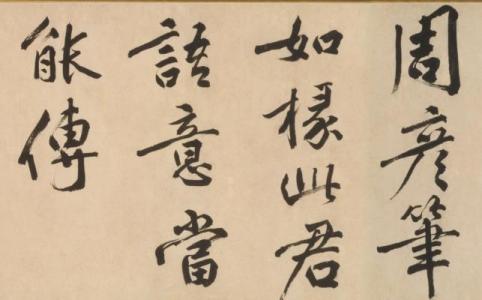 周彥筆
如椽此君
語意當
能傳